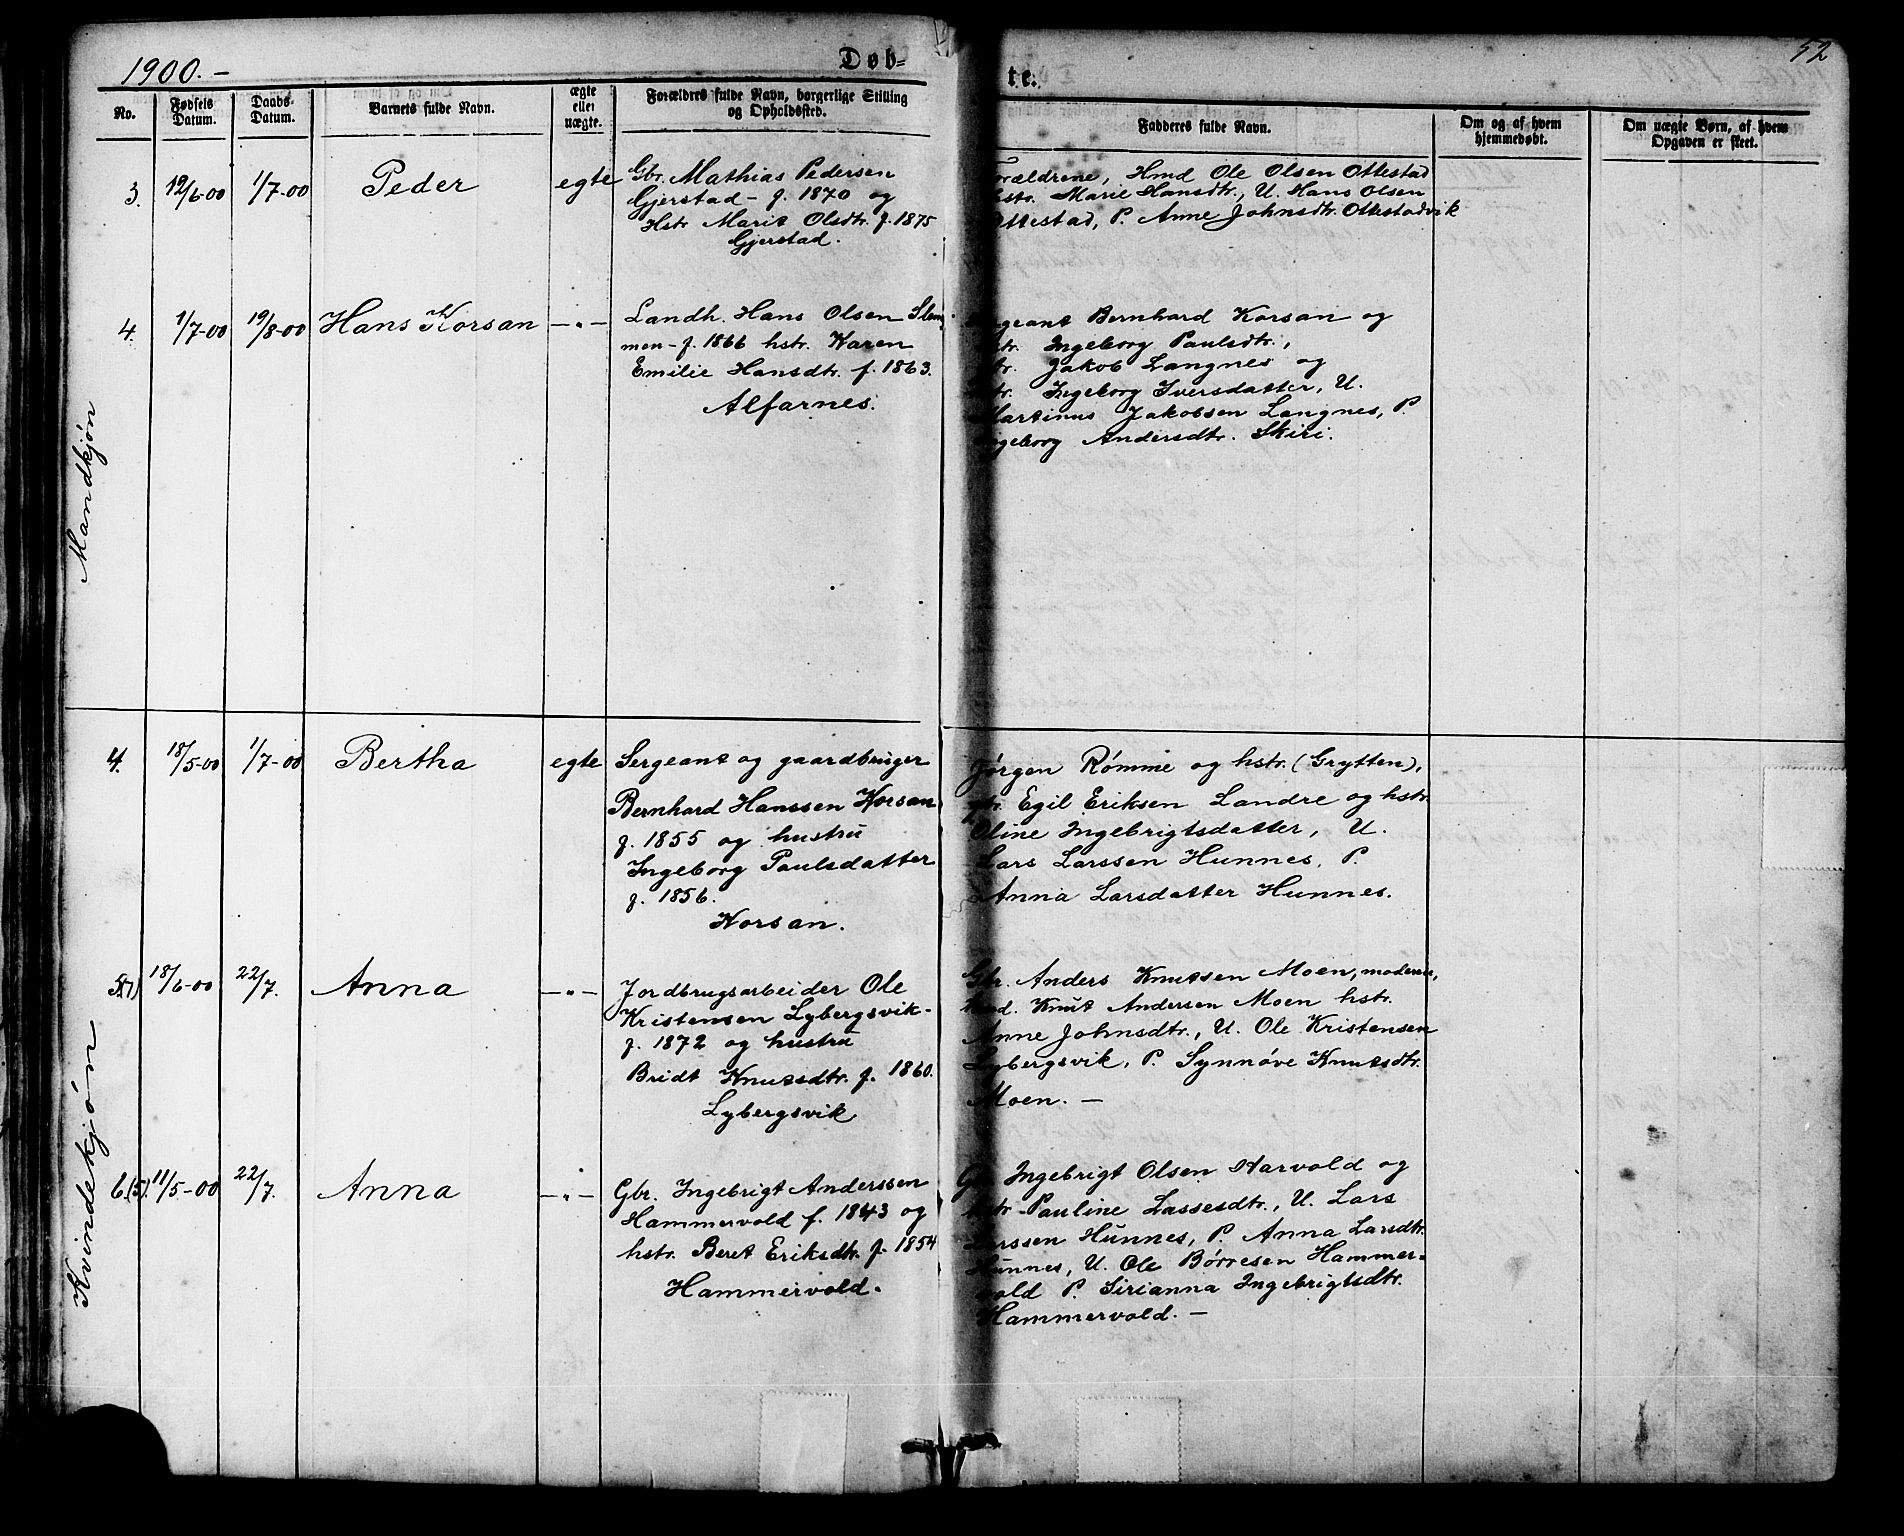 1900.-
Døb-
te.
52
No.
Fødsels Datum.
Daabs- Datum.
Barnets fulde Navn.
ægte eller uægte.
Forældres fulde Navn, borgerlige Stilling
og Opholdssted.
Fadderes fulde Navn.
Om og af hvem
hjemmedøbt.
Om uægte Børn, af hvem
Opgaven er skeet.
Mandkjøn
3. 12/6-00 1/7-00 Peder egte
Gbr. Mathias Pedersen
Gjerstad - f. 1870 og
Hstr Marit Olsdtr. f. 1875
Gjerstad.
Forældrene, Hmd Ole Olsen Ottestad
hstr. Marie Hansdtr., U. Hans Olsen
Ottestad, P. Anne Johnsdtr. Ottestadvik
4. 1/7-00 19/8-00 Hans Korsan -"-
Landh. Hans Olsen Slem
men - f. 1866 hstr. Karen
Emilie Hansdtr. f. 1863.
Alfarnes.
Sergeant Bernhard Korsan og
hstr. Ingeborg Paulsdtr.,
Jakob Langnes og
hstr. Ingeborg Iversdatter, U.
Martinus Jakobsen Langnes, P.
Ingeborg Andersdtr. Skiri.
Kvindekjøn
4. 18/5-00 1/7-00 Bertha egte
Sergeant og gaardbruger
Bernhard Hanssen Korsan
f. 1855 og hustru
Ingeborg Paulsdatter
f. 1856.
Korsan.
Jørgen Rømme og hstr. (Grytten),
gbr. Egil Eriksen Landre og hstr.
Oline Ingebrigtsdatter, U.
Lars Larssen Hunnes, P.
Anna Larsdatter Hunnes.
5(7) 18/6-00 22/7. Anna -"-
Jordbrugsarbeider Ole
Kristensen Lybergsvik-
f. 1872 og hustru
Bridt Knutsdtr. f. 1860.
Lybergsvik
Gbr. Anders Knutsen Moen, moderen,
Hmd. Knut Andersen Moen hstr.
Anne Johnsdtr., U. Ole Kristensen
Lybergsvik, P. Synnøve Knutsdtr.
Moen. -
6.(5). 11/5-00 22/7. Anna -"-
Gbr. Ingebrigt Anderssen
Hammervold f. 1843 og
hstr. Beret Eriksdtr. f. 1854
Hammervold.
Gbr. Ingebrigt Olsen Harvold og
hstr. Pauline Lassesdtr., U. Lars
Larssen Hunnes, P. Anna Larsdtr.
Hunnes, U. Ole Børresen Hammer-
vold P. Sirianna Ingebrigtsdtr.
Hammervold. -